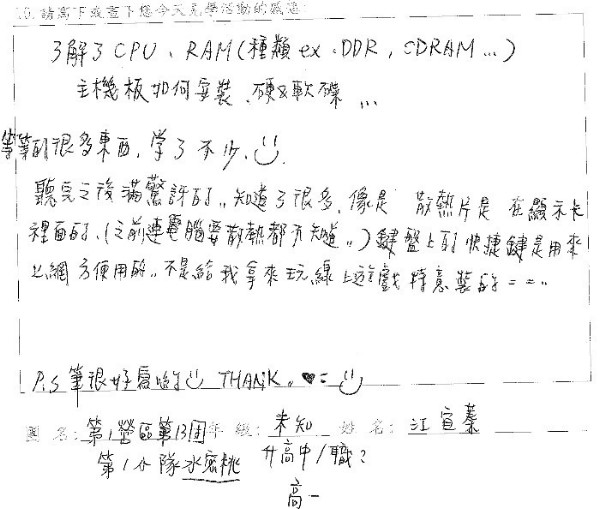 10.請寫下或畫下您今天見學活動的感想
了解了CPU、RAM(種類ex.DDR,SDRAM...)
主機板如何安裝.硬&軟碟...
等等的很多東西,学了不少.
聽完之後滿驚訝的..知道了很多,像是 散熱片是 在顯示卡
裡面的.(之前連電腦要散熱都不知道..)鍵盤上的快捷鍵是用來
上網方便用的..不是給我拿來玩線上遊戲特意裝的==..
P.S筆很好寫 THANK.♥=
團名:第1營區第13團 年級:未知 姓名:江宣蓁
第1小隊水密桃 升高中/職?
高一